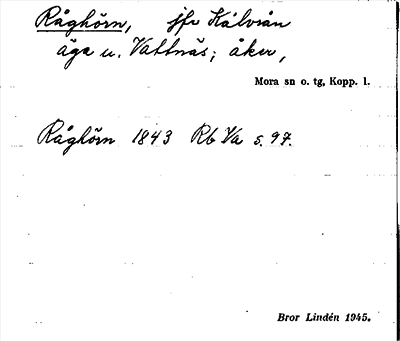 Råghörn, jfr Kålvrån
äga u. Vattnäs; åker,
Mora sn o. tg, Kopp. l.
Råghörn 1843 Rb Va s. 97.
Bror Lindén 1945.